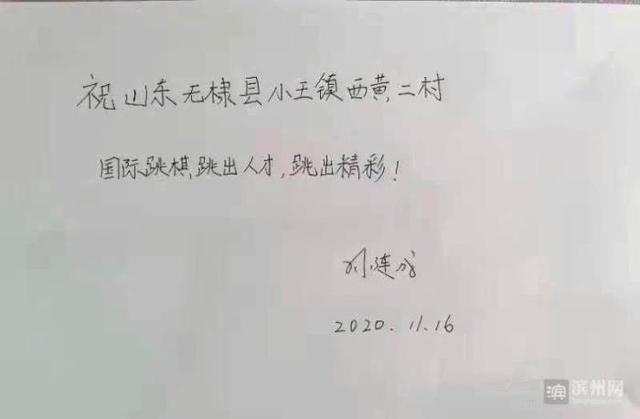 祝山东无棣县小王镇西黄二村
国际跳棋,跳出人才,跳出精彩!
刘连成
2020.11.16
滨 滨州网